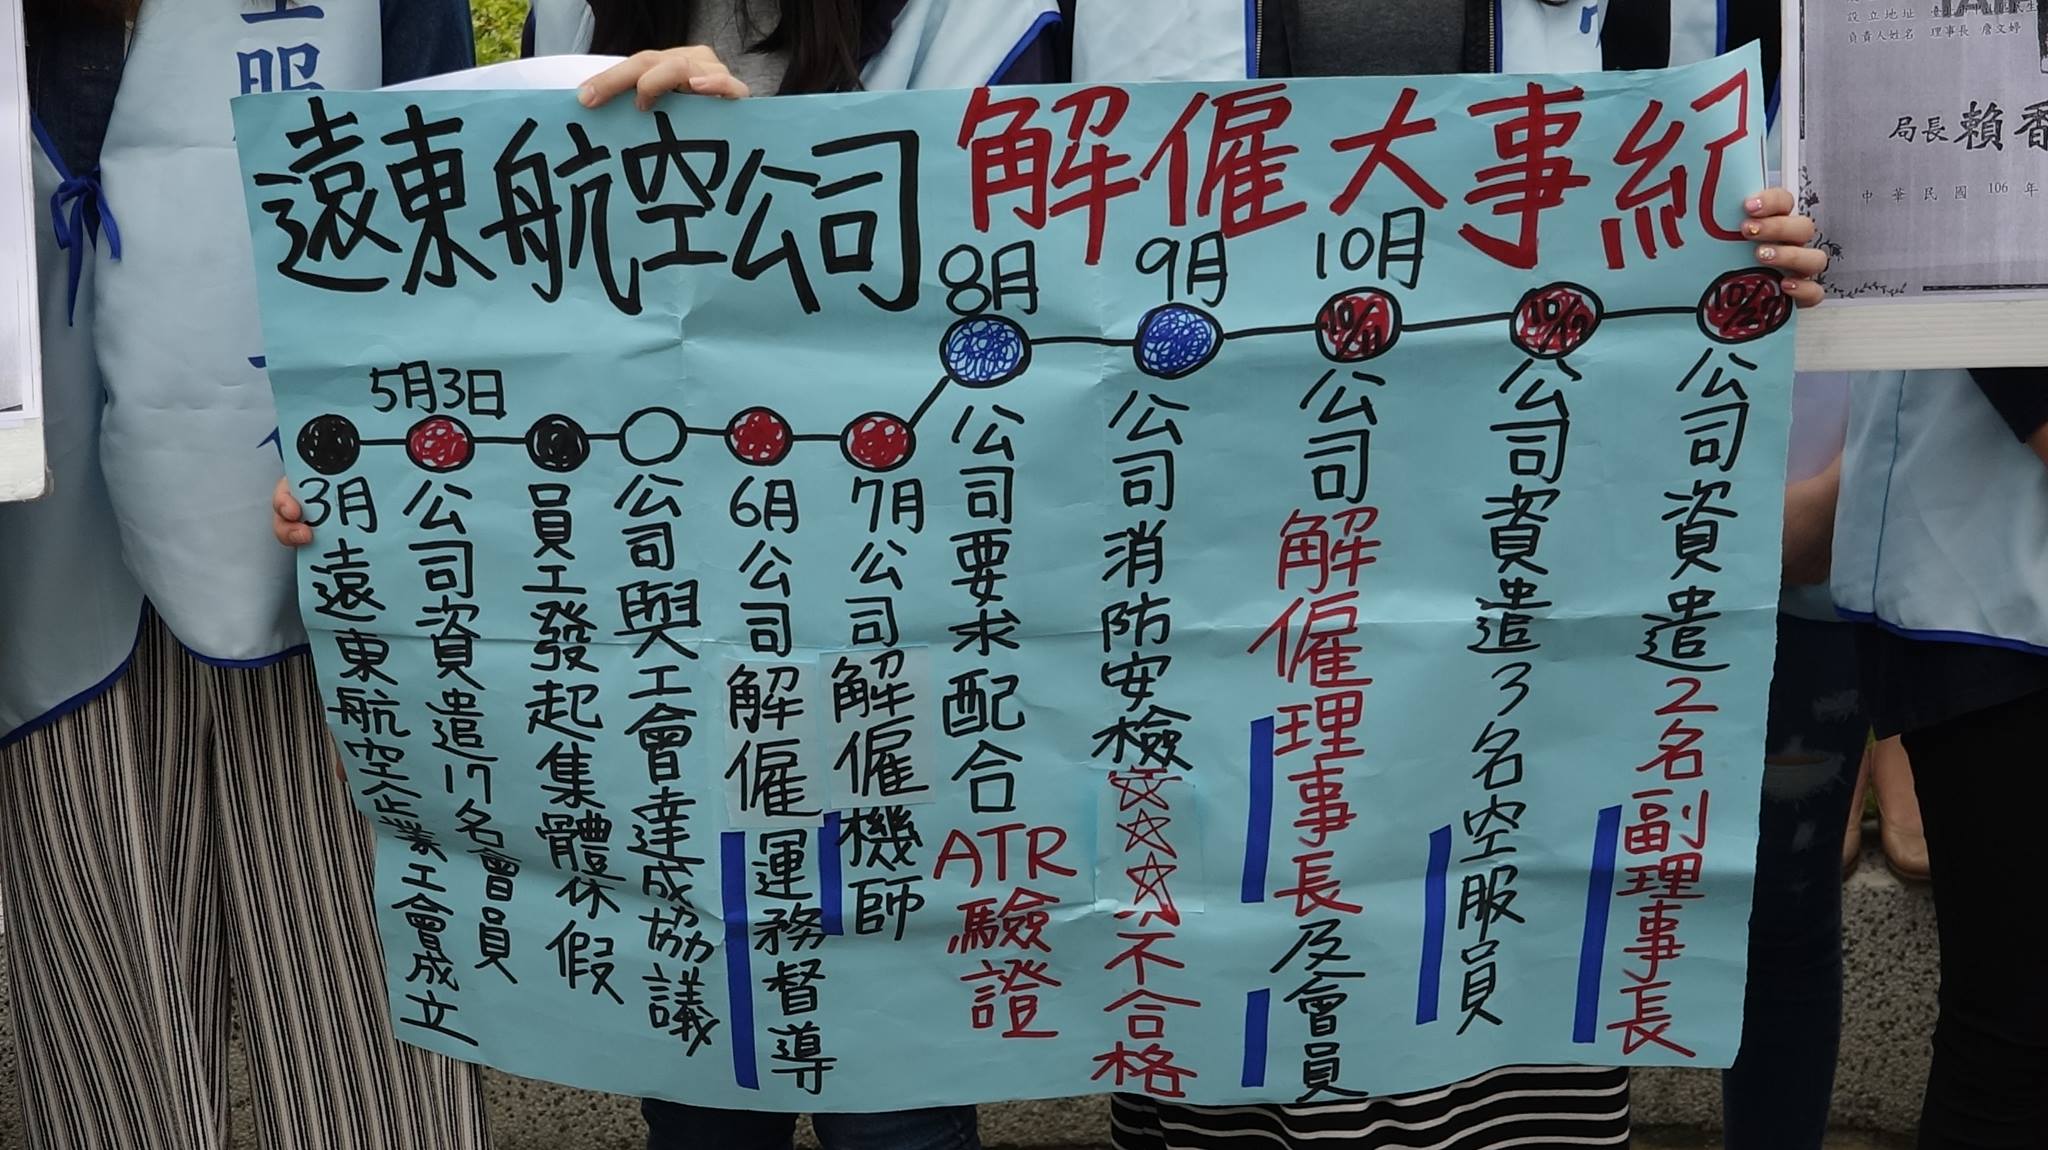 遠東航空公司 解僱大事紀
3月遠東航空企業工會成立
5月3日
公司資遣17名會員
員工發起集體休假
公司與工會達成協議
6月公司解僱運務督導
7月公司解僱機師
8月
公司要求配合ATR驗證
9月
公司消防安檢☆☆☆不合格
10月
10/11
公司解僱理事長及會員
公司資遣3名空服員
公司資遣2名副理事長
服
設立地址
負責人姓名 理事長 詹文婷
局長 賴香
中華民國 106 年